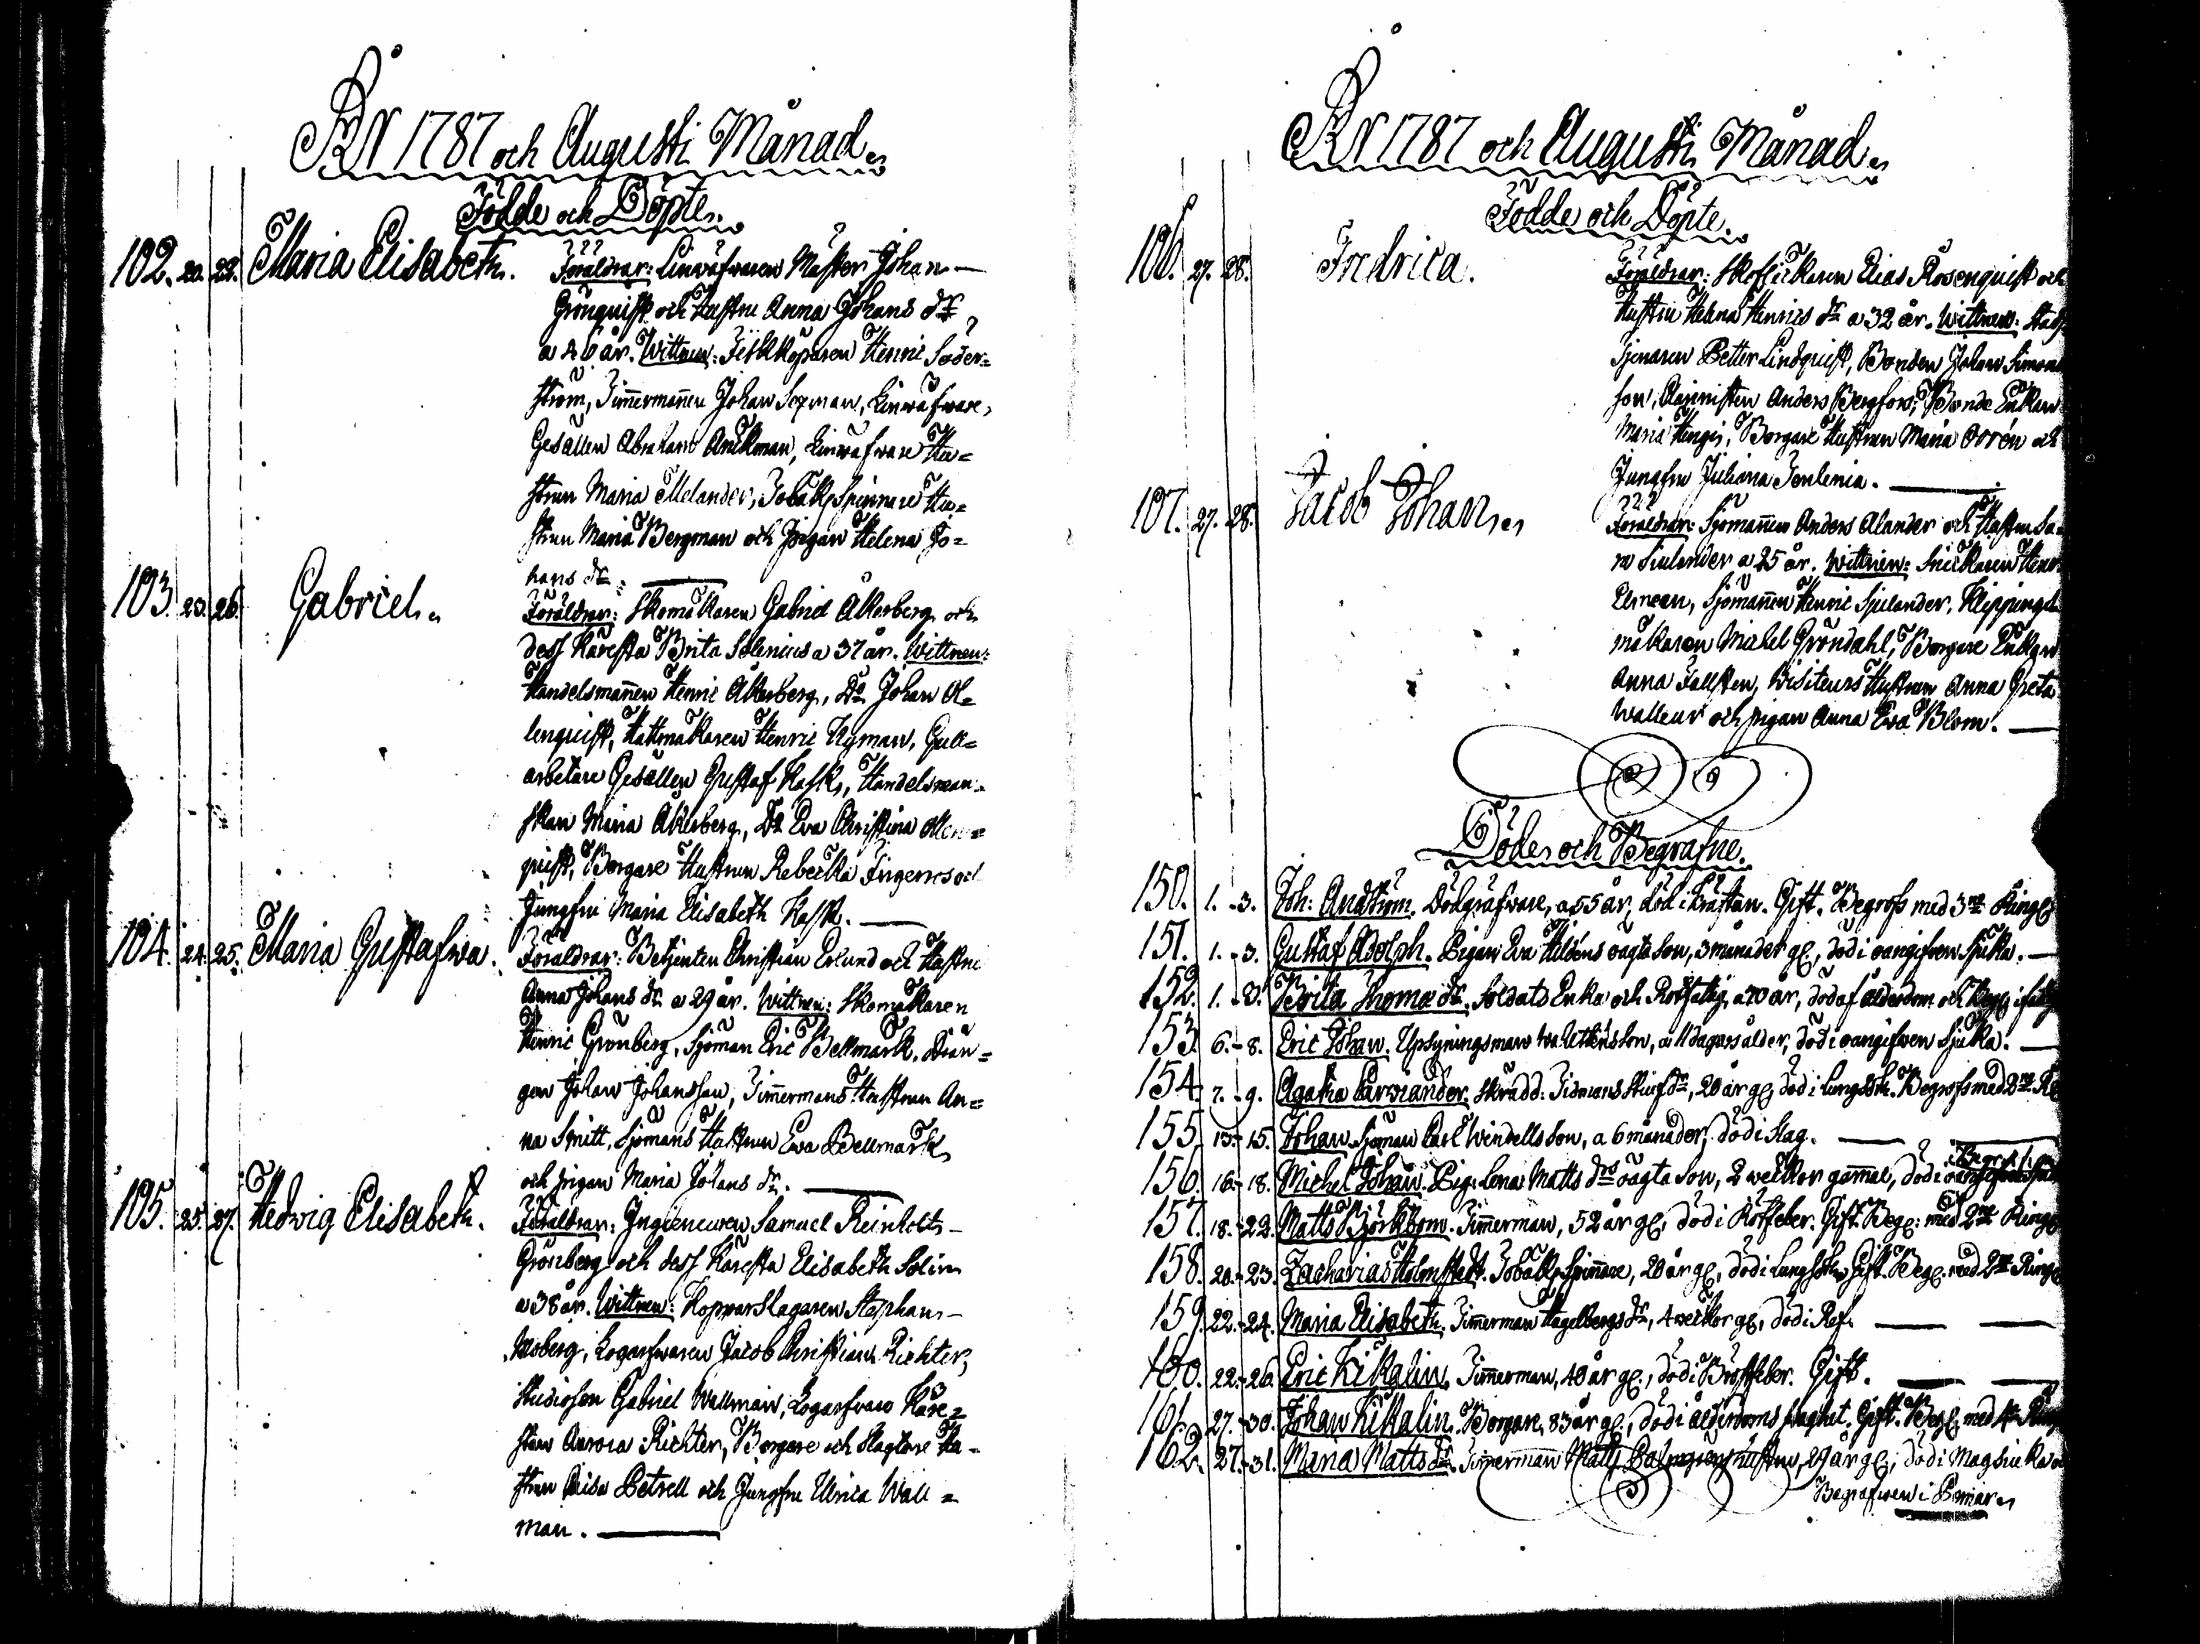 År 1787 och Augusti Månad.
Födde och Döpte.
102. 20. 22. Maria Elisabeth. Föräldrar: Linwäfwaren Mäster Johan
Grönquist och Hustru Anna Johans dr,
a 40 år. Wittnen: Fiskköparen Henric Söder=
ström, Timmermannen Johan Lexman, Linwäfware,
Gesällen Abraham Anckman, Linwäfware Hu=
strun Maria Melander, Tobaks Spinnare Hu=
strun Maria Bergman och Pigan Helena Jo=
hans dr.
103. 23. 26. Gabriel. Föräldrar: Skomakaren Gabriel Åkerberg och
dess Käresta Brita Solenius a 37 år. Wittnen:
Handelsmannen Henric Åkerberg, Do Johan Ol=
lenquist, Hattmakaren Henric Nyman, Gull=
arbetare Gesällen Gustaf Kask, Handelsman=
skan Maria Åkerberg, Do Eva Christina Ollen=
quist, Borgare Hustrun Rebecka Fingerroos och
Jungfru Maria Elisabeth Kask.
104. 24. 25. Maria Gustafwa. Föräldrar: Betjenten Christian Eklund och Hustru
Anna Johans dr a 29 år. Wittnen: Skomakaren
Henric Grönberg, Sjöman Eric Bellmark, Drän=
gen Johan Johansson, Timmermans Hustrun An=
na Smitt, Sjömans Hustrun Eva Bellmark
och Pigan Maria Johans dr.
105. 25. 27. Hedwig Elisabeth. Föräldrar: Ingieneuren Samuel Reinholt
Grönberg och dess Käresta Elisabeth Solin
a 38 år. Wittnen: Kopparslagaren Stephan
Moberg, Logarfwaren Jacob Christian Richter,
Studiosen Gabriel Wallman, Logarfware Käre=
stan Aurora Richter, Borgare och Slagtare Hu=
strun Lisa Petrell och Jungfru Ulrica Wall=
man.
År 1787 och Augusti Månad.
Födde och Döpte.
106. 27. 28. Fredrica. Föräldrar: Skoflickaren Elias Rosenquist och
Hustru Helena Henrics dr a 32 år. Wittnen: Stads
Tjenaren Petter Lindquist, Bonden Johan Simons
son, Anders Bergfors, Bonde Enkan
Maria Hengis, Borgare Hustrun Maria Orrén och
Jungfru Juliana
107. 27. 28. Jacob Johan. Föräldrar: Sjömannen Anders Alander och Hustru Sa=
ra Siulander a 25 år. Wittnen: Snickaren Henr.
Elmean, Sjömannen Henric Sjulander, Klippings
makaren Michel Gröndahl, Borgare Enkan
Anna Fallsten, Visiteurs Hustrun Anna Greta
Walleur och pigan Anna Eva Blom.
Döde och Begrafne.
150. 1. 3. Joh: Andström, Dödgräfware, a 55 år, död i kräftan. Gift. Begrofs med 3ne Ring
151. 1. 3. Gustaf Adolph. Pigan Eva Hildéns oägta son, 3 månader gl, död i oangifwen Sjuka.
152. 1. 8. Brita Thomæ dr. Soldats Enka och Rotfattig, a 70 år, död af ålderdom och Begr.
153. 6. 8. Eric Johan. Upsyningsman son, a 11 dagars ålder, död i oangifwen Sjuka.
154. 7. 9. Agatha Skrädd: Stiufdr, 20 år gl, död i Lungsoth. Begrofs med 2ne Ri
155. 13. 15. Johan Sjöman Carl Windells son, a 6 månader, död i slag.
156. 16. 18. Michel Johan. Pig: Lena Matts drs oägta son, 2 weckor gammal, död i
157. 18. 22. Matts Björkbom. Timmerman, 52 år gl, död i Rötfeber. Gift. Begr: med 2ne Ring
158. 20. 23. Zacharias Holmstedt. Tobaks Spinnare, 28 år gl, död i Lungsoth. Gift. Begr. med 2ne Ring
159. 22. 24. Maria Elisabeth. Timmerman Hagelbergs dr, 4 weckor gl, död i Ref.
160. 22. 26. Eric Kikalin. Timmerman, 40 år gl, död i Bröstfeber. Gift.
161. 27. 30. Johan Kikalin. Borgare, 83 år gl, död i ålderdoms swaghet. Gift. Begr. med Ring
162. 27. 31. Maria Matts dr. Timmerman Matts hustru, 29 år gl, död i Magsiuka
Begrafwen i Pomar